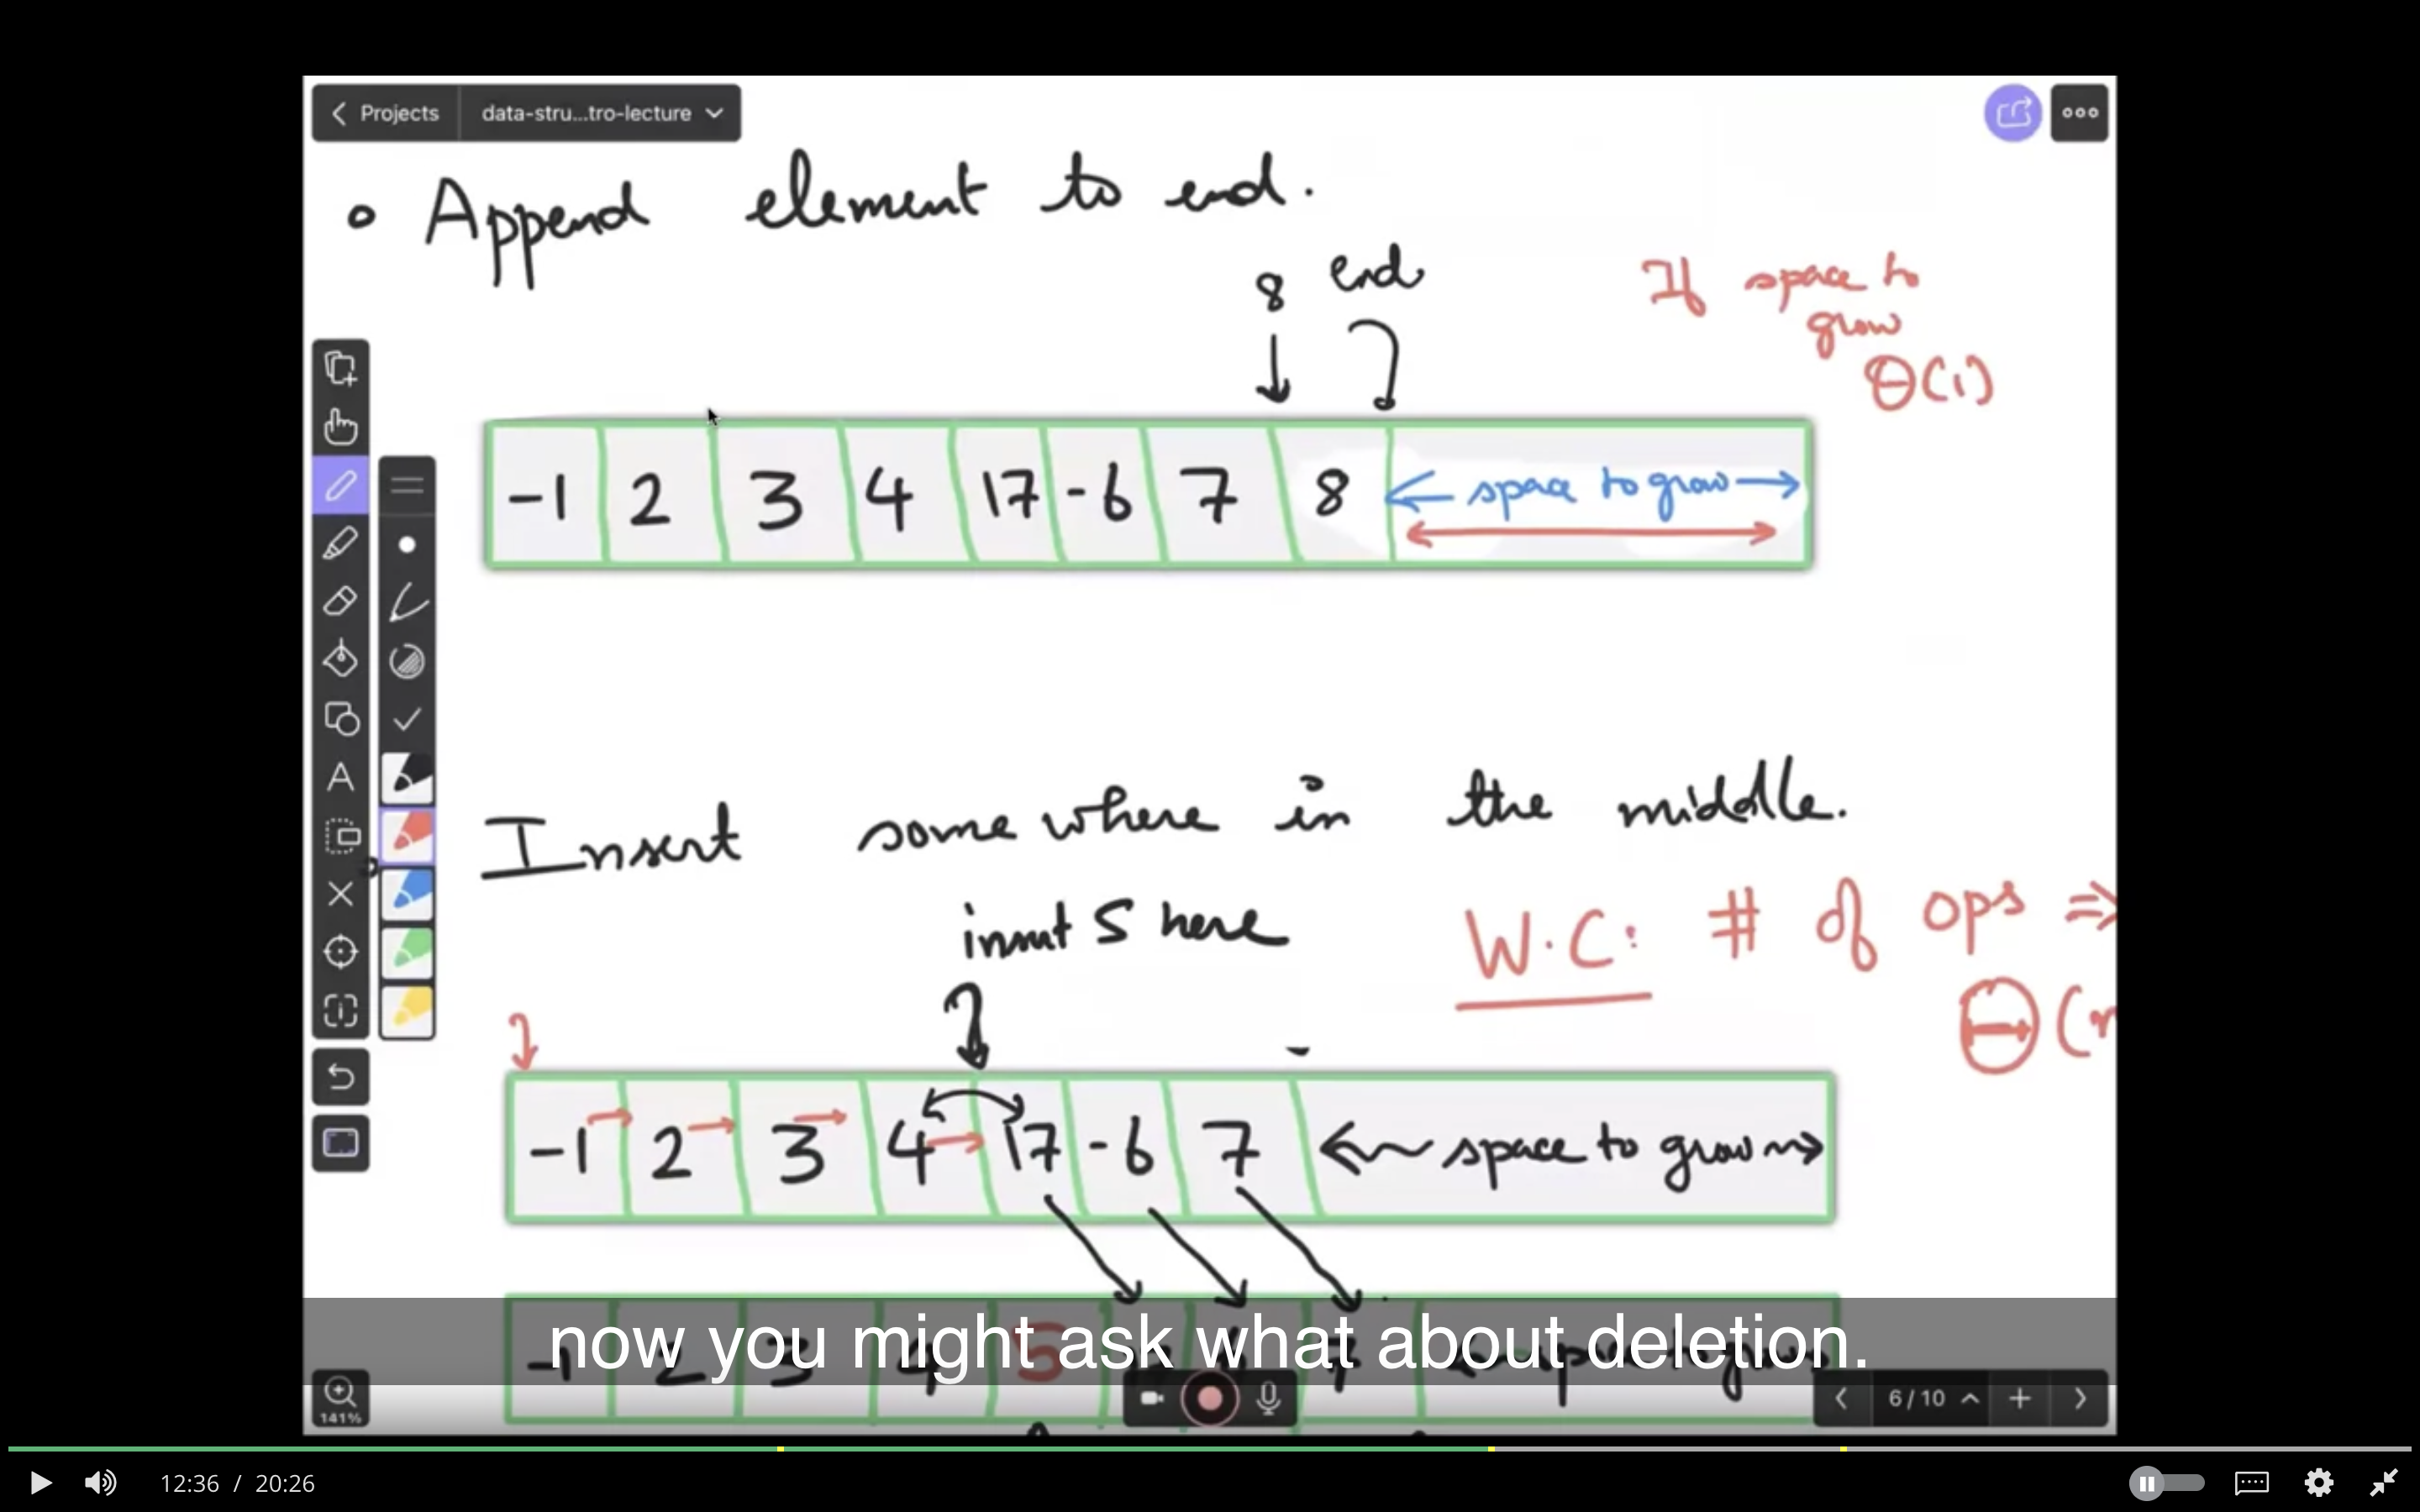 Projects data-stru...tro-lecture
Append element to end.
8 end
If space to
grow
Θ(1)
-1 2 3 4 17 -6 7 8 space to grow
Insert some where in the middle.
insert 5 here
W.C: # of ops ⇒
Θ(n
-1 2 3 4 17 -6 7 space to grow
-1 2 3 4 5 7
now you might ask what about deletion.
141%
6 / 10
12:36 / 20:26